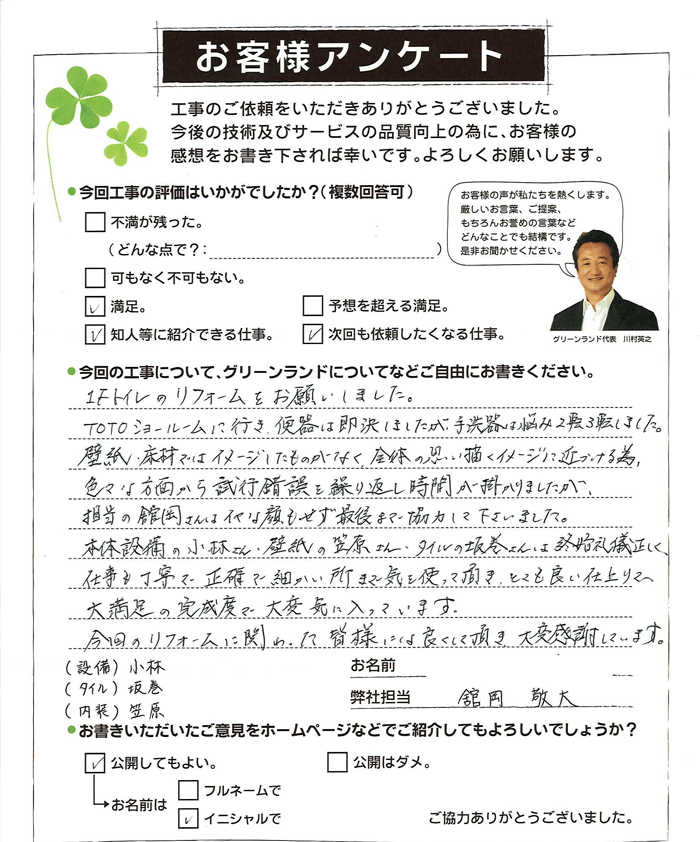 お客様アンケート
工事のご依頼をいただきありがとうございました。
今後の技術及びサービスの品質向上の為に、お客様の
感想をお書き下されば幸いです。よろしくお願いします。
今回工事の評価はいかがでしたか？（複数回答可）
不満が残った。
（どんな点で？：　）
可もなく不可もない。
満足。
予想を超える満足。
知人等に紹介できる仕事。
次回も依頼したくなる仕事。
お客様の声が私たちを熱くします。
厳しいお言葉、ご提案、
もちろんお誉めの言葉など
どんなことでも結構です。
是非お聞かせください。
グリーンランド代表　川村英之
今回の工事について、グリーンランドについてなどご自由にお書きください。
1Fトイレのリフォームをお願いしました。
TOTOショールームに行き、便器は即決しましたが手洗器は悩み2転3転しました。
壁紙・床材ではイメージしたものがなく、全体の思い描くイメージに近づける為、
色々な方面から試行錯誤を繰り返し時間が掛かりましたが、
担当の舘岡さんはイヤな顔もせず最後まで協力して下さいました。
本体設備の小林さん・壁紙の笠原さん・タイルの坂巻さんは終始礼儀正しく、
仕事も丁寧で正確で細かい所まで気を使って頂き、とても良い仕上りで、
大満足の完成度で大変気に入っています。
今回のリフォームに関わった皆様には良くして頂き大変感謝しています。
（設備）小林
（タイル）坂巻
（内装）笠原
お名前
弊社担当　舘岡　敬大
お書きいただいたご意見をホームページなどでご紹介してもよろしいでしょうか？
公開してもよい。
公開はダメ。
お名前は
フルネームで
イニシャルで
ご協力ありがとうございました。